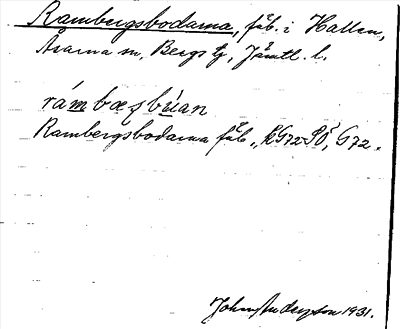 Rambergsbodarna, fäb. i Hallen,
Åsarna sn, Bergs tg, Jämtl. l.
rámbæsbùan
Rambergsbodarna fäb., RG72SÖ, G72.
John Anderzson 1931.